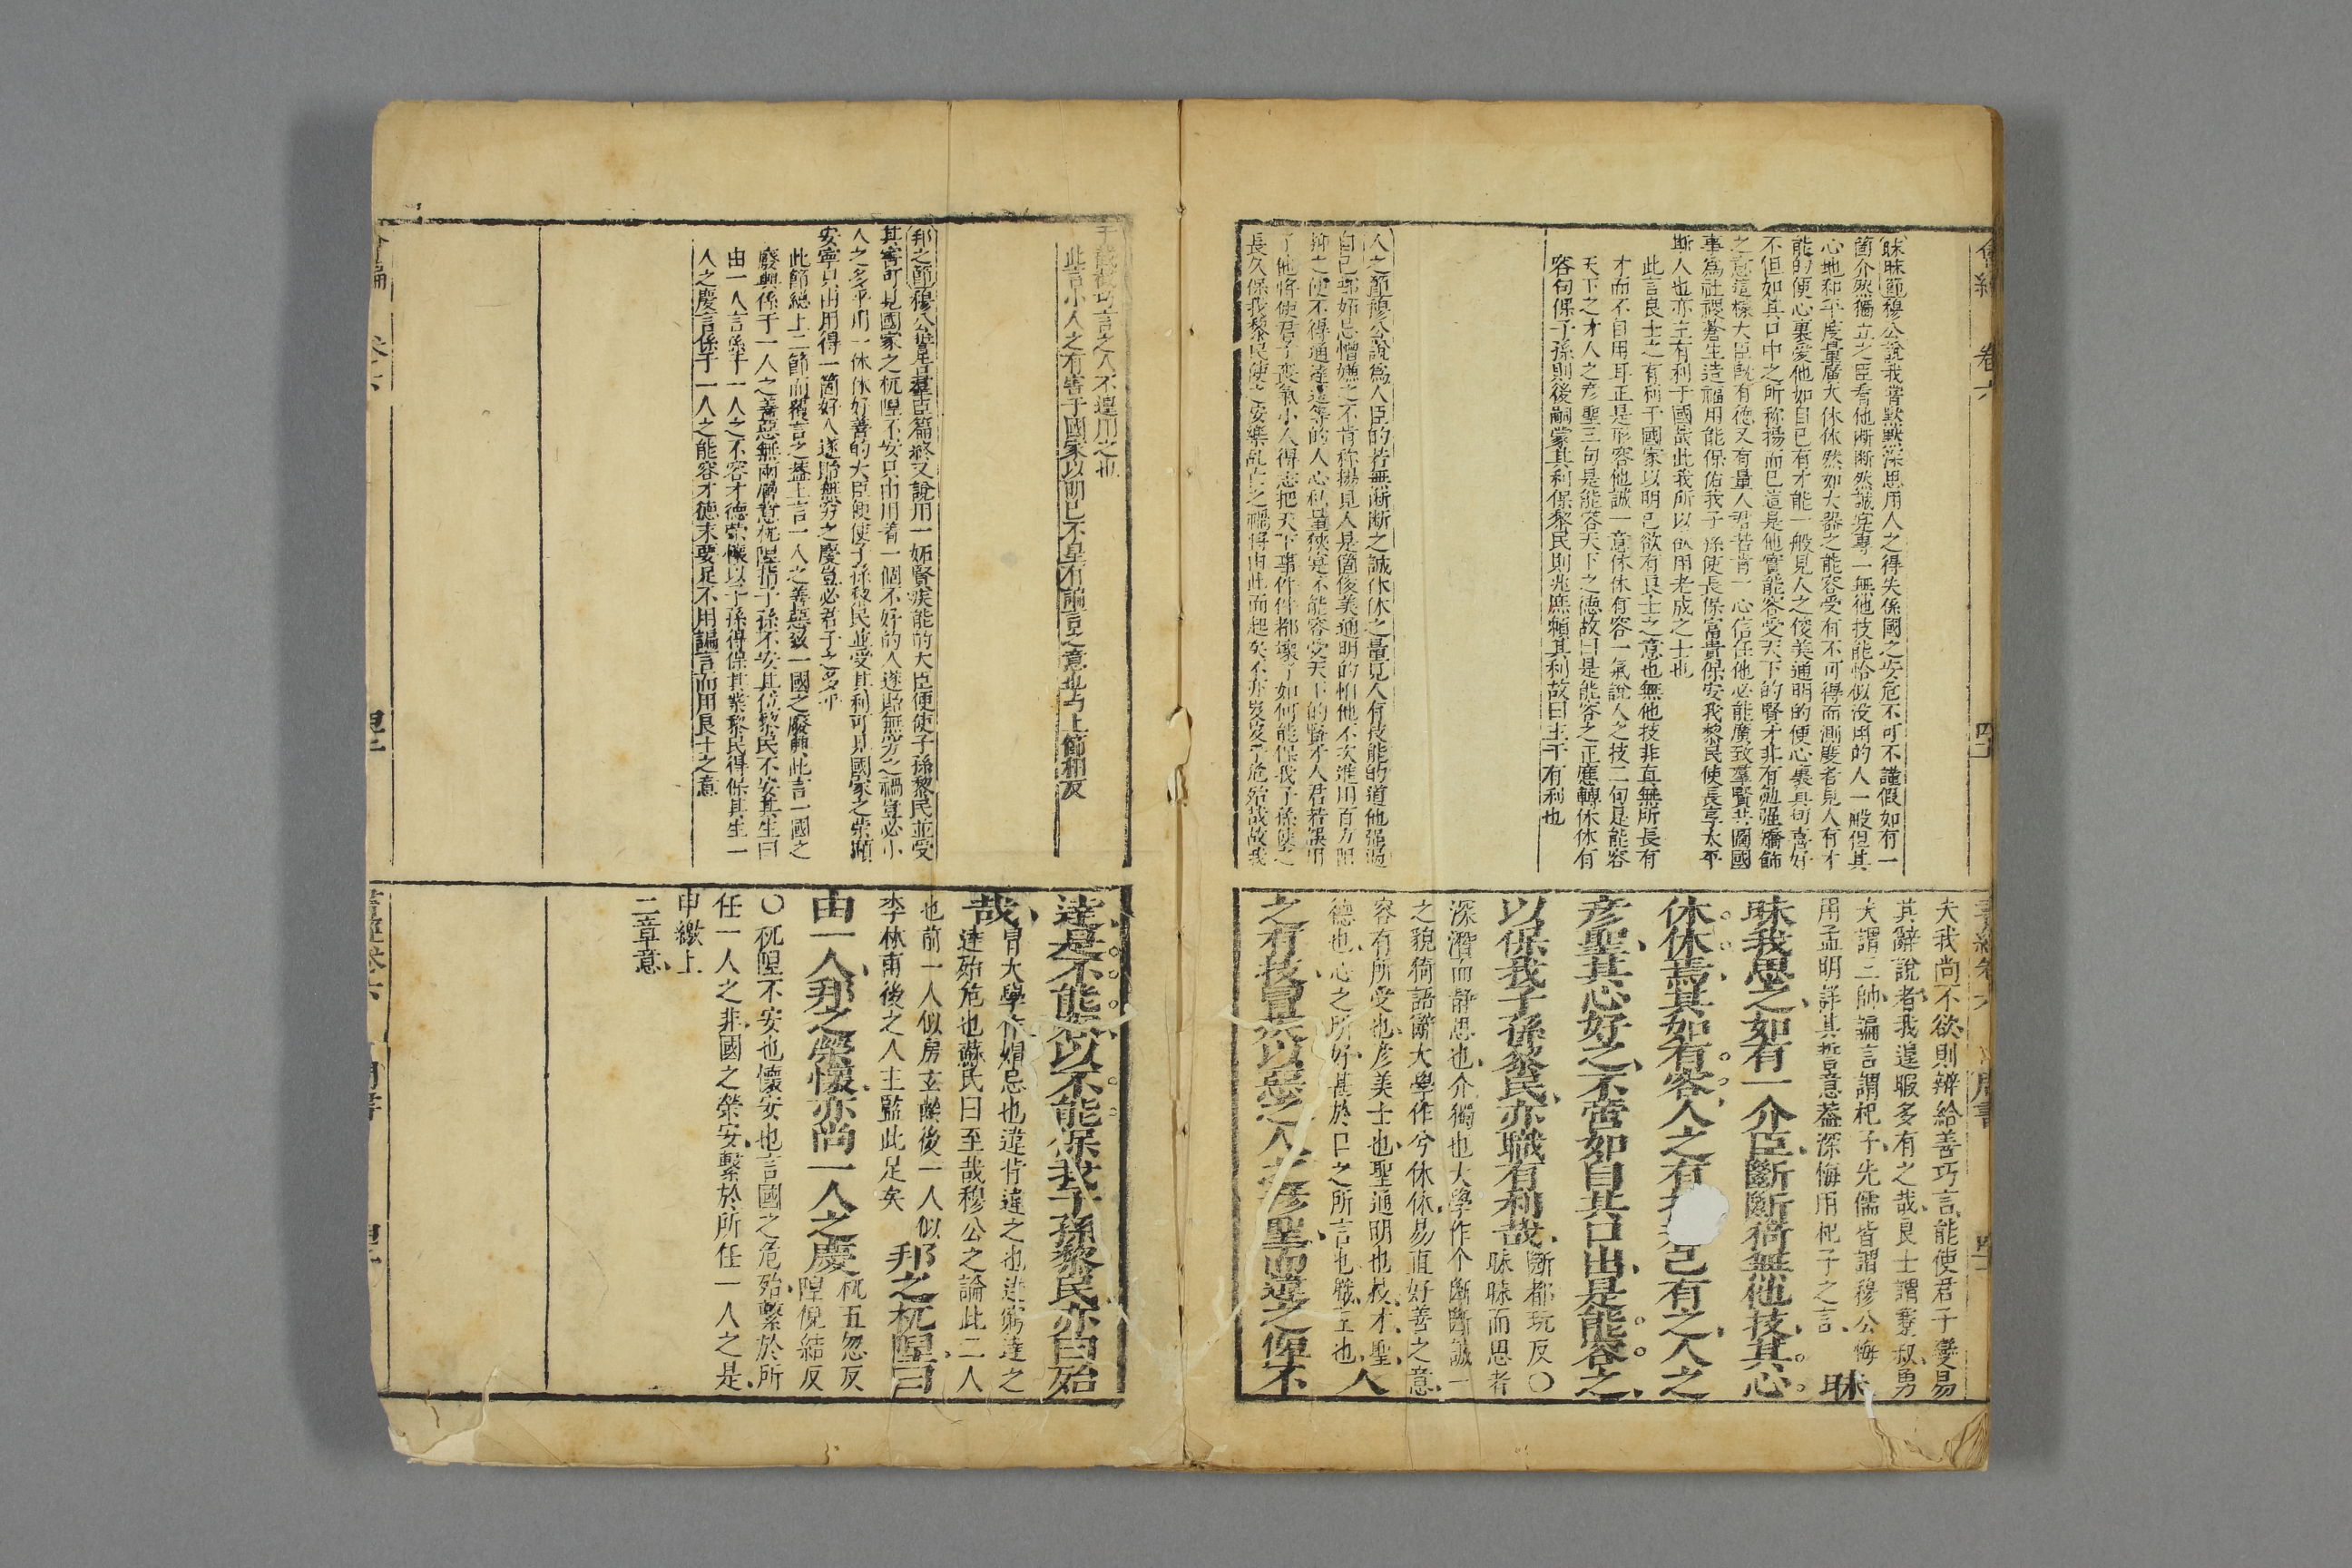 昧昧節穆公說我嘗默默深思用人之得失係國之安危不可不謹假如有一
箇介然獨立之臣看他斷斷然誠寔專一無他技能恰似没用的人一般但其
心地和平度量廣大休休然如大器之能容受有不可得而測度者見人有才
能的便心裏愛他如自己有才能一般見人之俊美通明的便心裏真切喜好
不但如其口中之所称揚而已這是他實能容受天下的賢才非有勉强矯飾
之意這樣大臣既有德又有量人君若肯一心信任他必能廣致羣賢共圖國
事為社稷蒼生造福用能保佑我子孫使長保富貴保安我黎民使長享太平
斯人也亦主有利于國哉此我所以欲用老成之士也
此言良士之有利于國家以明己欲有良士之意也無他技非真無所長有
才而不自用耳正是形容他誠一意休休有容一氣說人之技二句是能容
天下之才人之彥聖三句是能容天下之德故曰是能容之正應轉休休有
容句保子孫則後嗣蒙其利保黎民則兆庶賴其利故曰主于有利也
人之節穆公說為人臣的若無斷斷之誠休休之量見人有技能的道他强過
自己
便不得通達這等的人心私量狹寔不能容受天下的賢才人君若誤用
了他將使君子喪氣小人得志把天下事件件都壞了如何能保我子孫使之
長久保我黎民使之安樂亂亡之禍將由此而起矣不亦岌岌乎危殆哉故我
夫我尚不欲則辯給善巧言能使君子變易
其辭說者我遑暇多有之哉良士謂蹇叔勇
夫謂三帥諞言謂杞子先儒皆謂穆公悔
用孟明詳其誓意蓋深悔用杞子之言 昧
昧我思之如有一介臣斷斷猗無他技其心
休休焉其如有容人之有己有之人之
彥聖其心好之不啻如自其口出是能容之
以保我子孫黎民亦職有利哉 斷都玩反○
昧昧而思者
深潛而靜思也介獨也大學作个斷斷誠一
之貌猗語辭大學作兮休休易直好善之意
容有所受也彥美士也聖通明也技才聖
德也心之所好甚於口之所言也職主也 人
之有技冒疾以惡之人之彥聖而違之俾不
巧言之人不遑用之也
此言小人之有害于國家以明己不皇有諞言之意也與上節相反
邦之節穆公誓羣臣篇終又說用一妬賢疾能的大臣便使子孫黎民並受
其害可見國家之杌隉不安只由用着一個不好的人遂貽無窮之禍豈必小
人之多乎用一休休好善的大臣便使子孫黎民並受其利可見國家之榮顯
安寧只由用得一箇好人遂貽無窮之慶豈必君子之多乎
此節總上二節而覆言之蓋上言一人之善惡致一國之廢興此言一國之
廢興係于一人之善惡無兩層意杌隉指子孫不安其位黎民不安其生曰
由一人言係乎一人之不容才德榮懷以子孫得保其業黎民得保其生一
人之慶言係于一人之能容才德末要足不用諞言而用良士之意
達是不能容以不能保我子孫黎民亦曰殆
哉 冒大學作媢忌也違背違之也達窮達之
達殆危也蘇氏曰至哉穆公之論此二人
也前一人似房玄齡後一人似
李林甫後之人主監此足矣 邦之杌隉曰
由一人邦之榮懷亦尚一人之慶 杌五忽反
隉倪結反
○杌隉不安也懷安也言國之危殆繫於所
任一人之非國之榮安繫於所任一人之是
申繳上
二章意